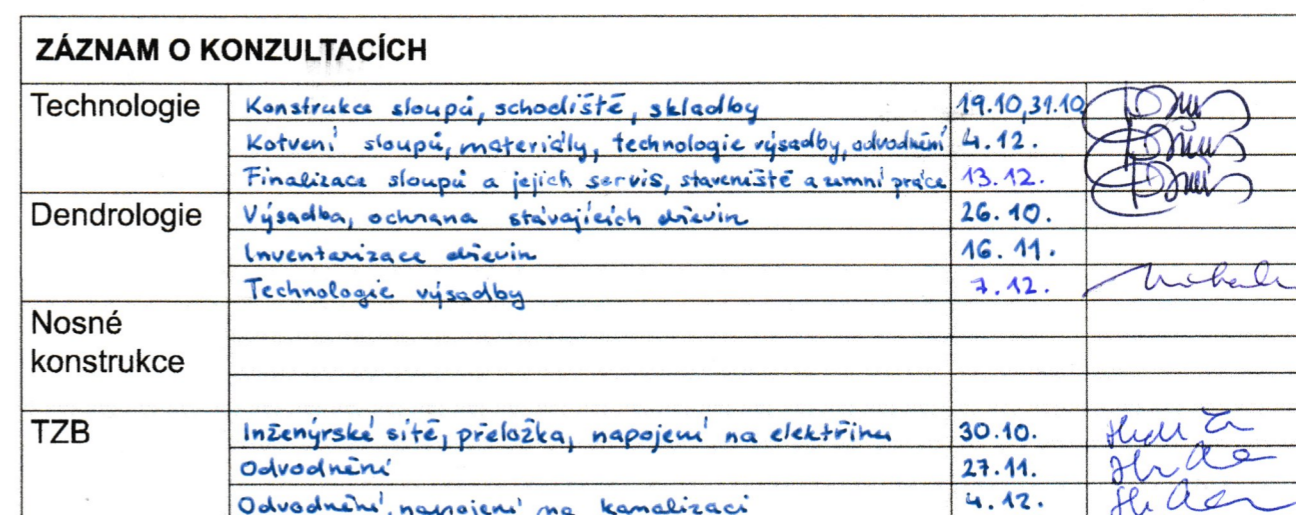 ZÁZNAM O KONZULTACÍCH
Technologie Konstrukce sloupů, schodiště, skladby 19.10,31.10
Kotvení sloupů, materiály, technologie výsadby, odvodnění 4.12.
Finalizace sloupů a jejich servis, staveniště a zemní práce 13.12.
Dendrologie Výsadba, ochrana stávajících dřevin 26.10.
Inventarizace dřevin 16.11.
Technologie výsadby 7.12.
Nosné
konstrukce
TZB Inženýrské sítě, přeložka, napojení na elektřinu 30.10.
Odvodnění 27.11.
Odvodnění, napojení na kanalizaci 4.12.